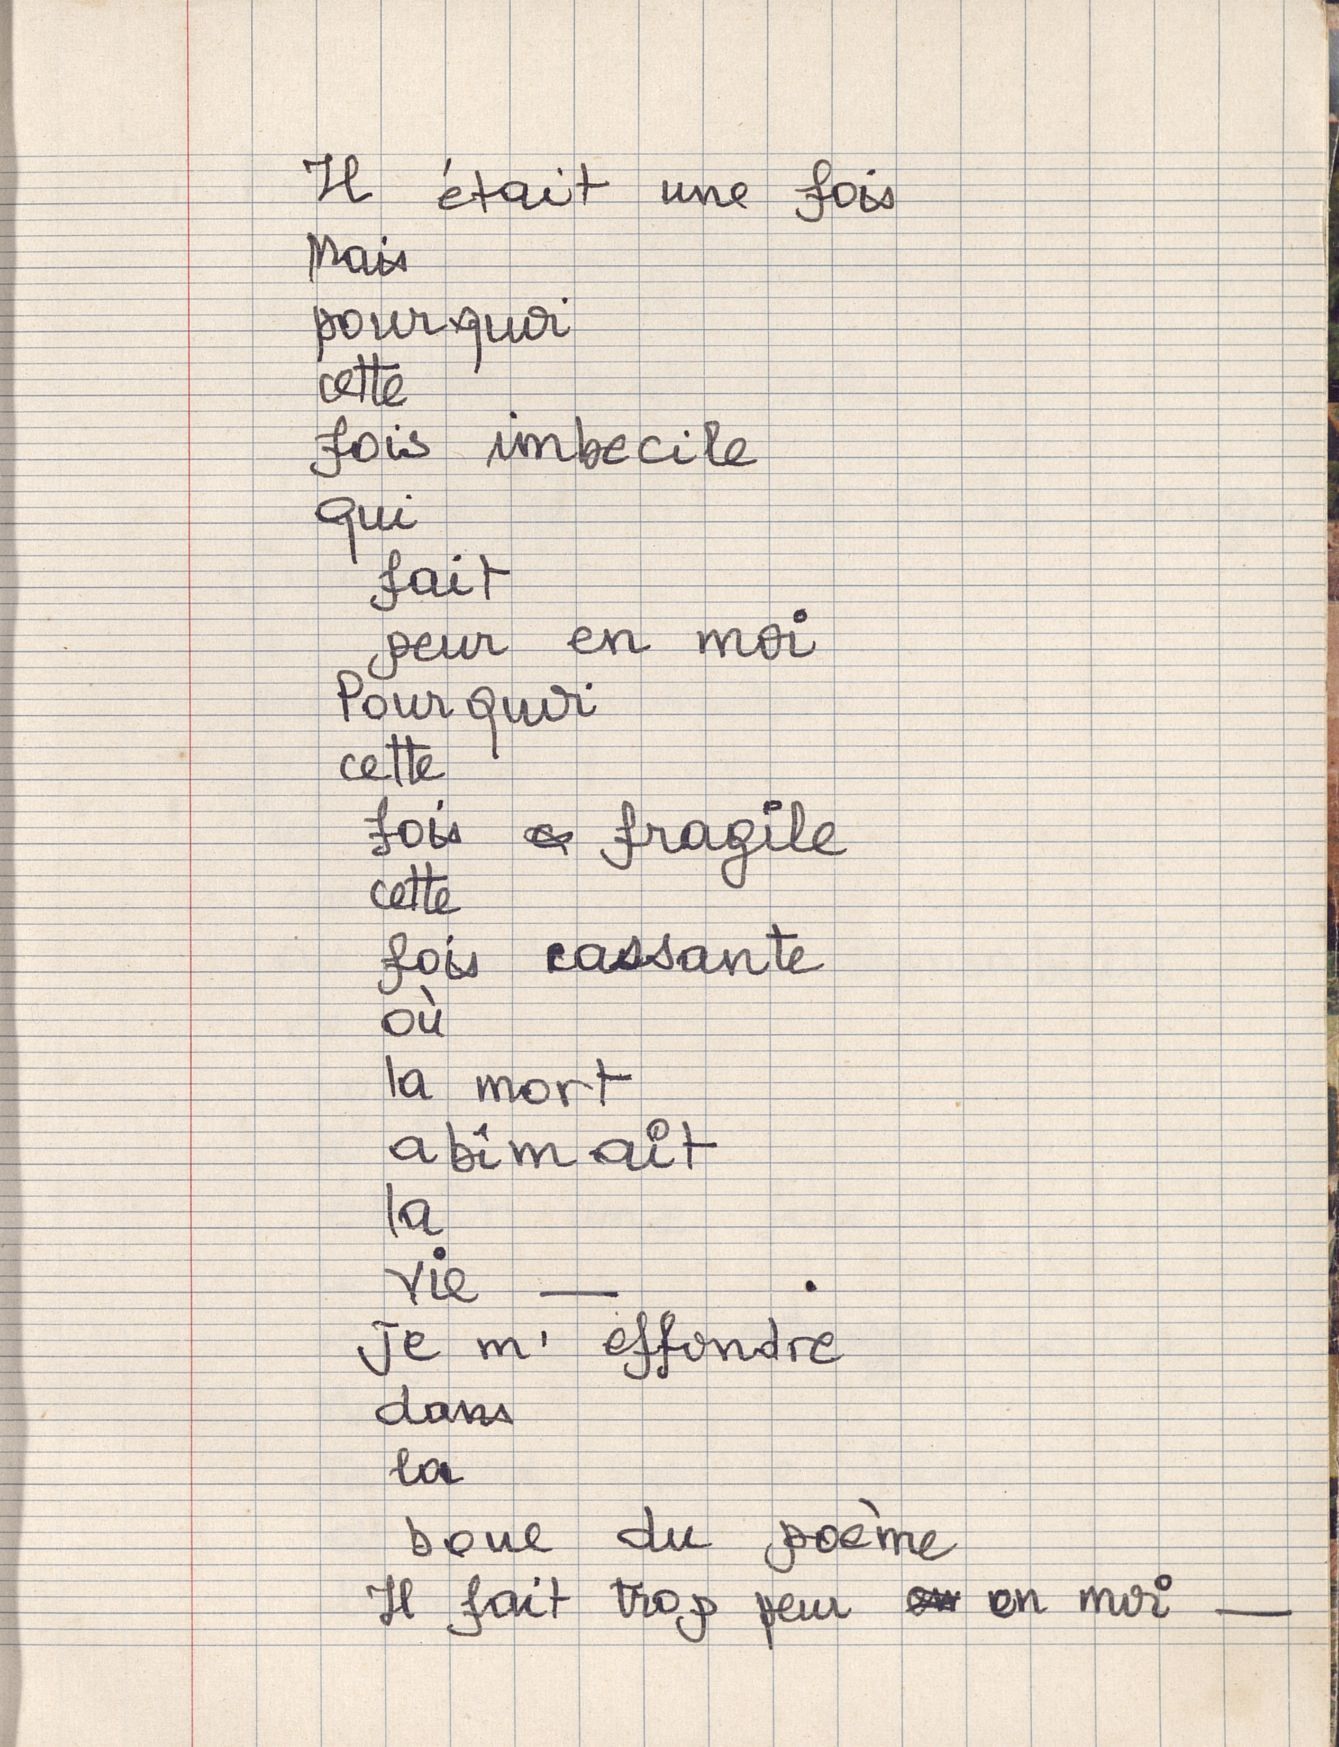 Il était une fois
Mais
pourquoi
cette
fois imbecile
qui
fait
peur en moi
Pourquoi
cette
fois fragile
cette
fois cassante
où
la mort
abîmait
la
vie —
Je m'effondre
dans
la
boue du poème
Il fait trop peur en moi —